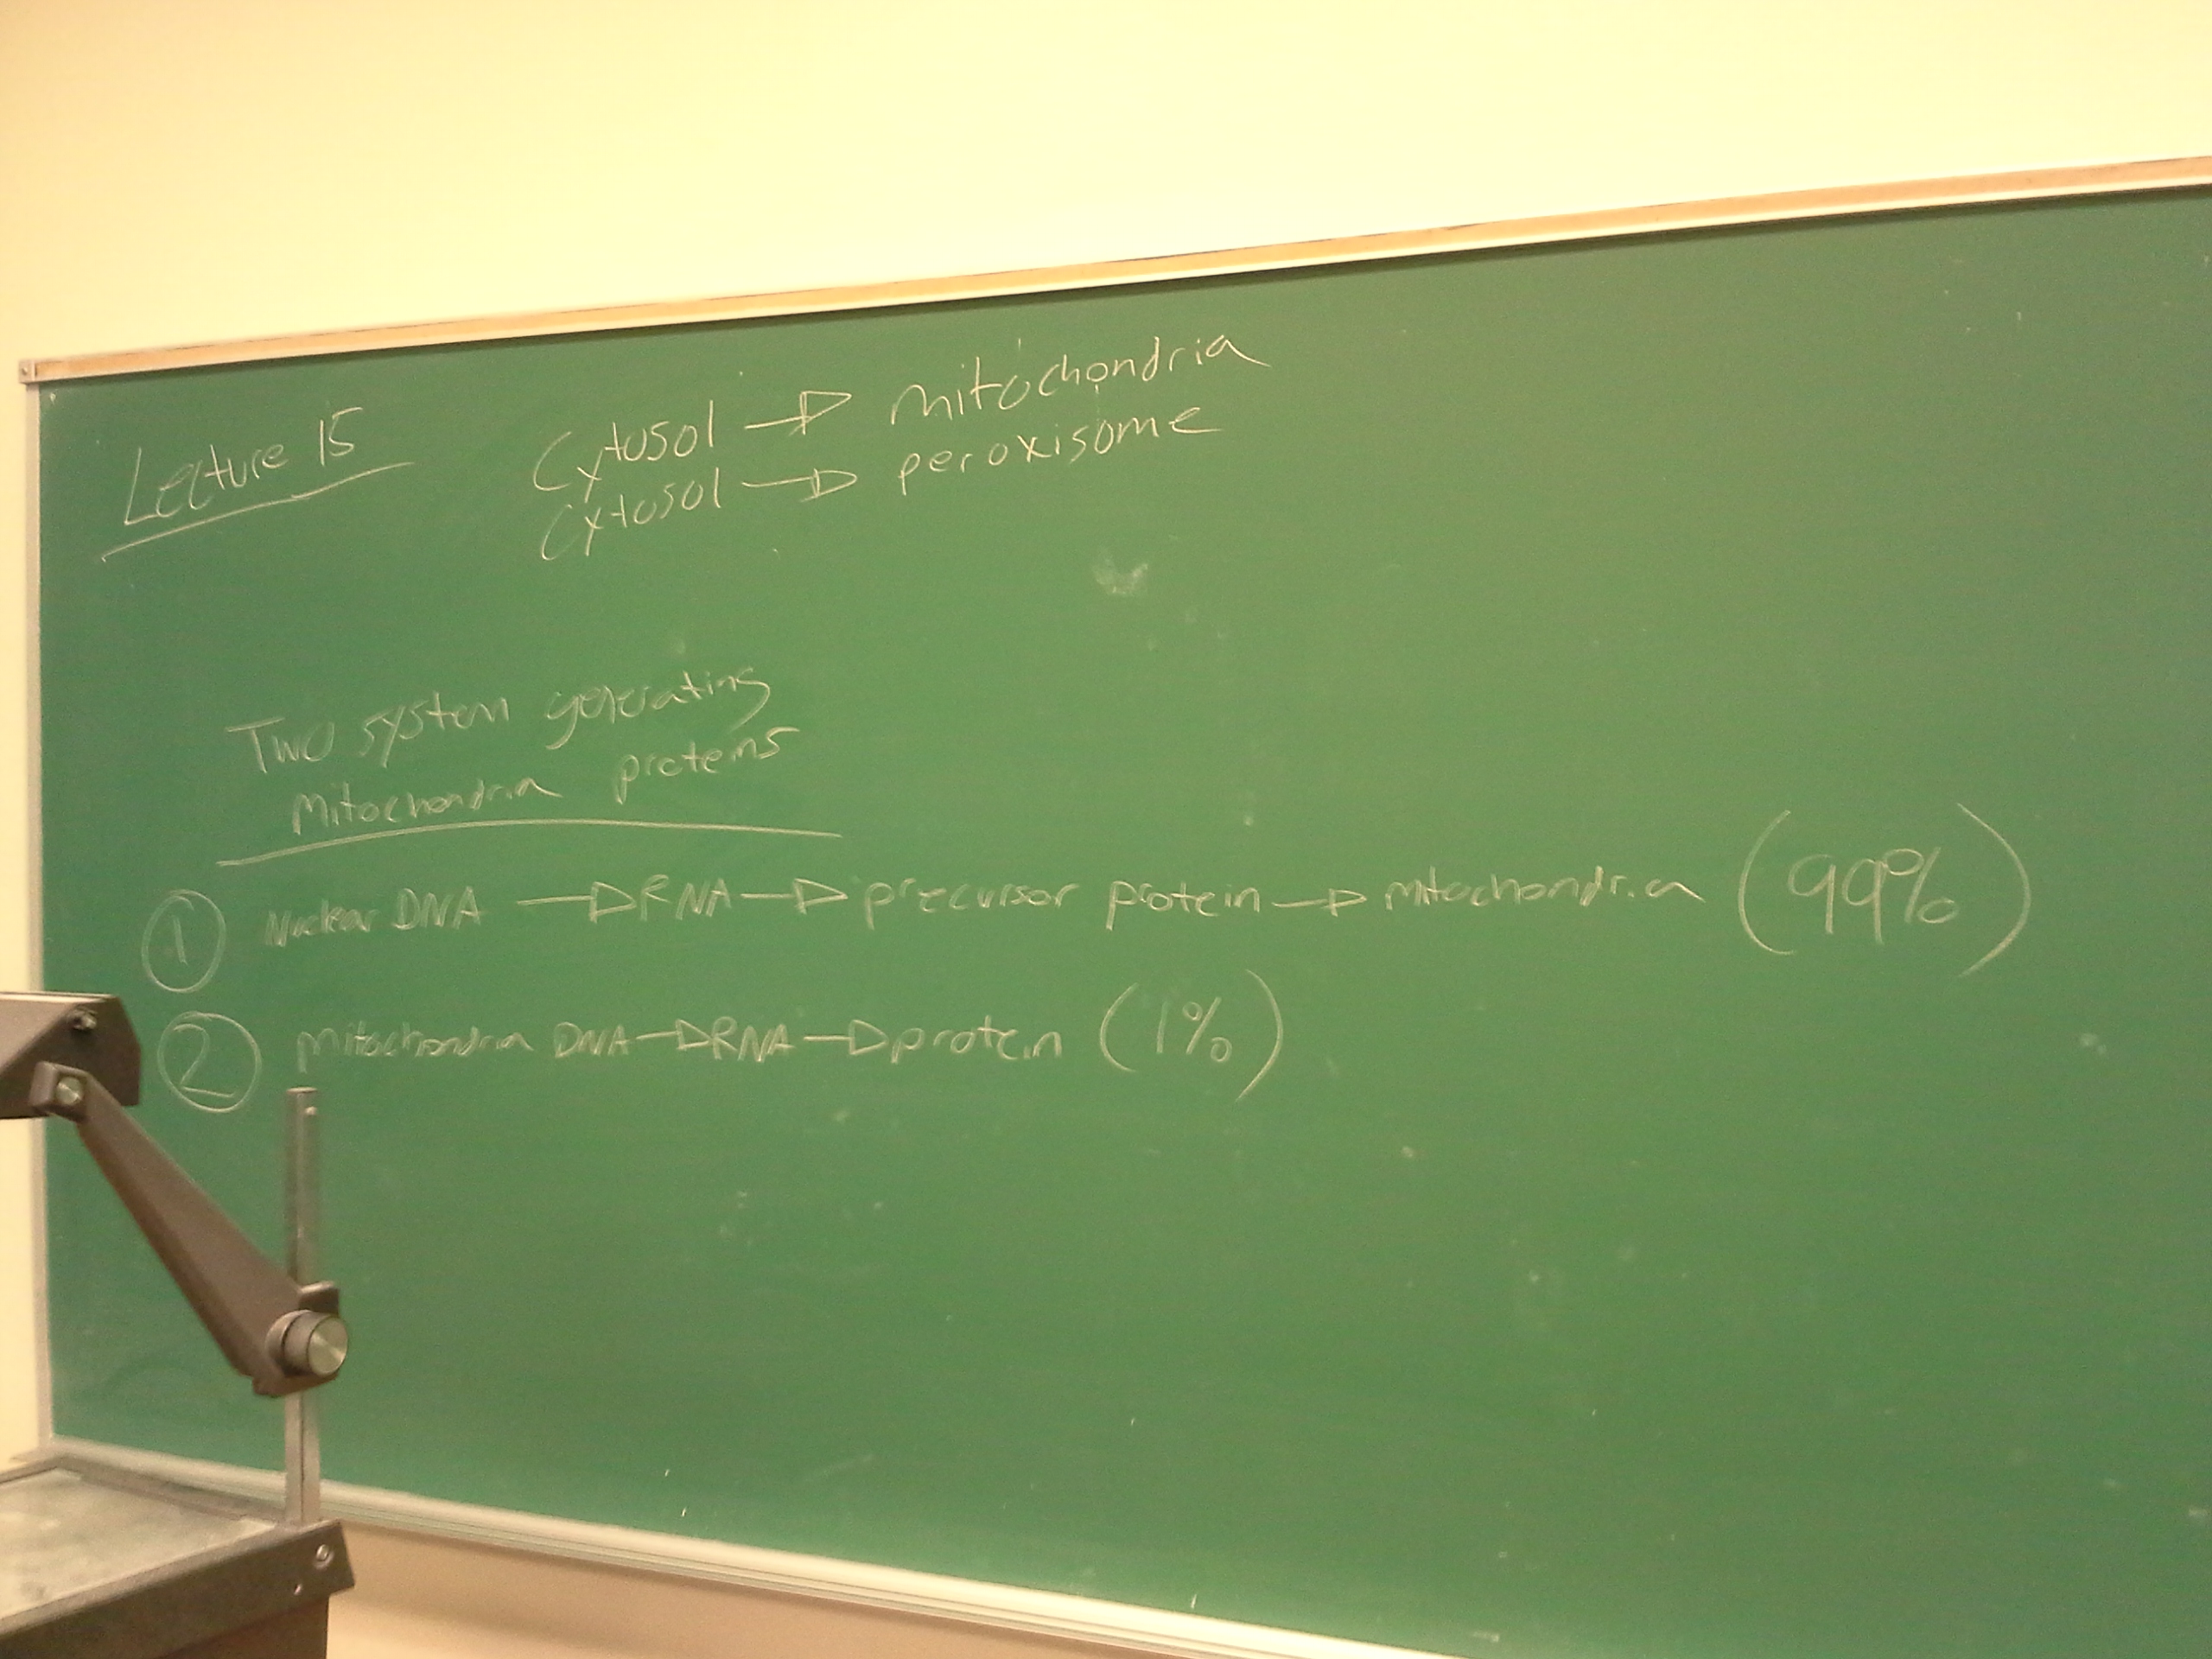 Lecture 15
Cytosol → mitochondria
Cytosol → peroxisome
Two system generating
Mitochondria proteins
1 Nuclear DNA → RNA → precursor protein → mitochondria (99%)
2 Mitochondria DNA → RNA → protein (1%)